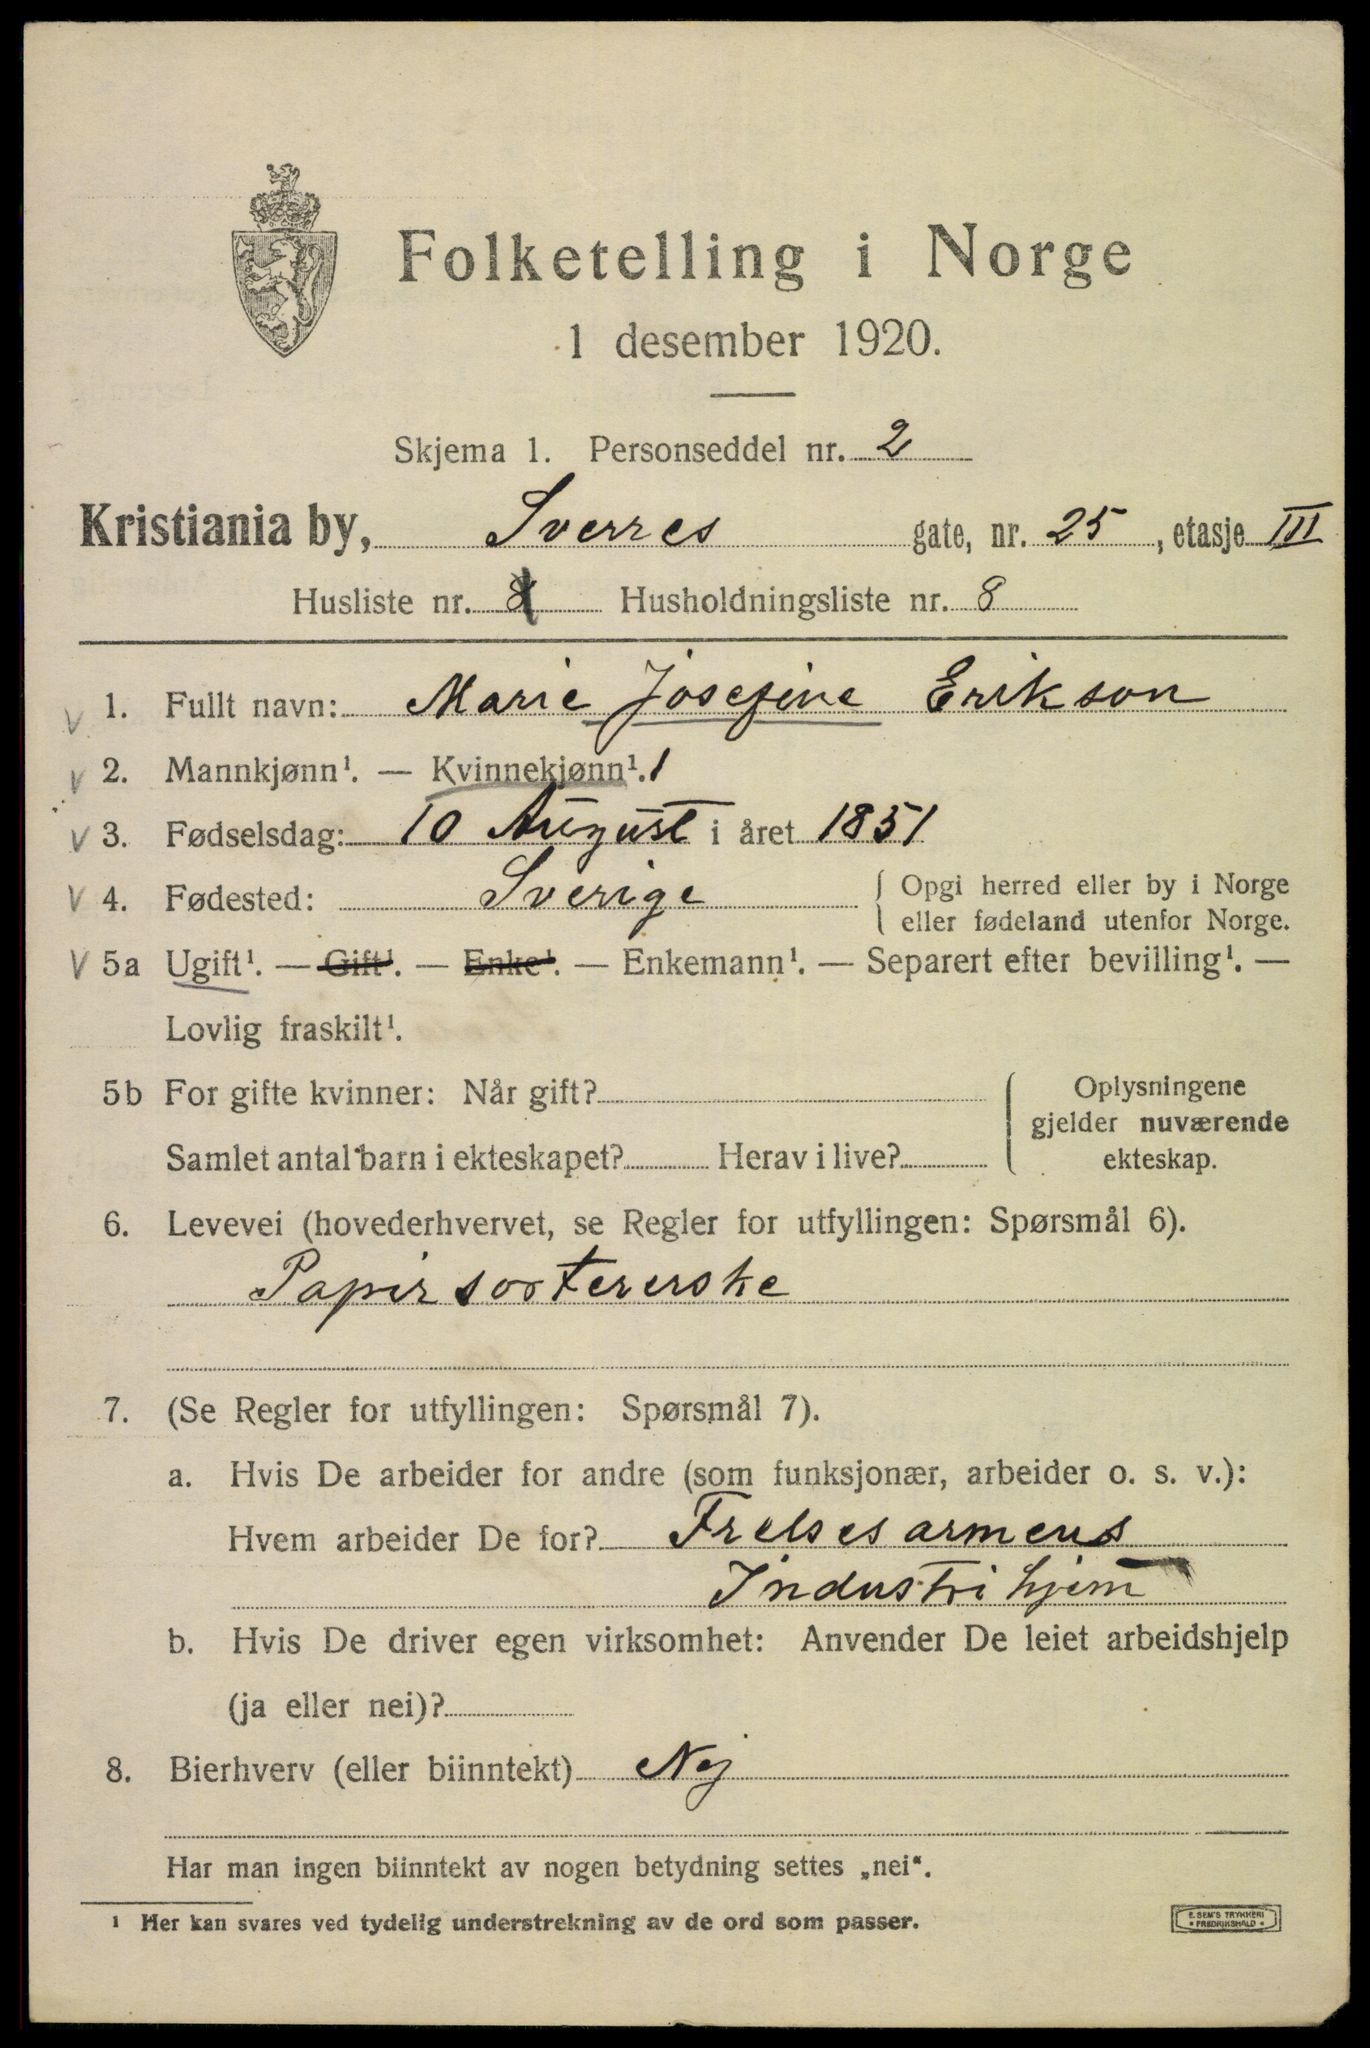 Folketelling i Norge
1 desember 1920.
Skjema 1. Personseddel nr. 2
Kristiania by, Sverres gate, nr. 25, etasje III
Husliste nr. Husholdningsliste nr. 8
V 1. Fullt navn: Marie Josefine Erikson
V 2. Mannkjønn¹. — Kvinnekjønn¹. 1
V 3. Fødselsdag: 10 August i året 1851
V 4. Fødested: Sverige { Opgi herred eller by i Norge
eller fødeland utenfor Norge.
V 5a Ugift¹. — Gift¹. — Enke¹. — Enkemann¹. — Separert efter bevilling¹. —
Lovlig fraskilt¹.
5b For gifte kvinner: Når gift? { Oplysningene
gjelder nuværende
Samlet antal barn i ekteskapet? Herav i live? ekteskap.
6. Levevei (hovederhvervet, se Regler for utfyllingen: Spørsmål 6).
Papirsortererske
7. (Se Regler for utfyllingen: Spørsmål 7).
a. Hvis De arbeider for andre (som funksjonær, arbeider o. s. v.):
Hvem arbeider De for? Frelsesarmeens
Industrihjem
b. Hvis De driver egen virksomhet: Anvender De leiet arbeidshjelp
(ja eller nei)?
8. Bierhverv (eller biinntekt) Nej
Har man ingen biinntekt av nogen betydning settes „nei“.
¹ Her kan svares ved tydelig understrekning av de ord som passer.
E. SEM'S TRYKKERI
• FREDRIKSHALD •